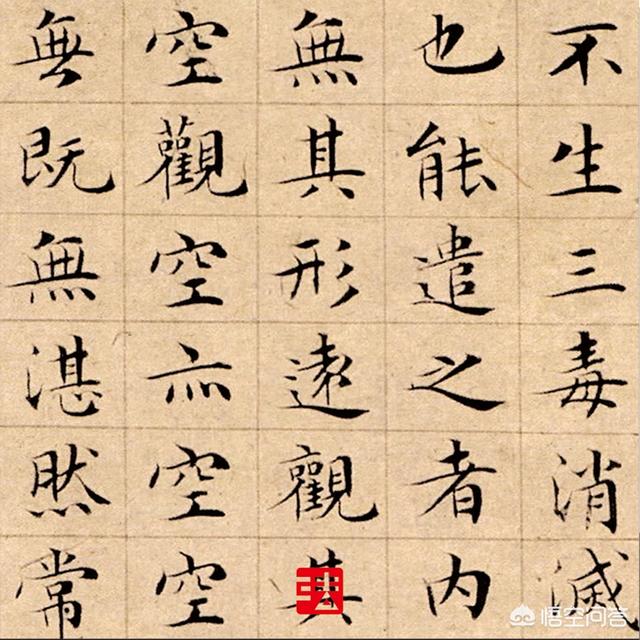 不生三毒消滅
也能遣之者内
無其形遠觀其
空觀空亦空空
無既無湛然常
悟空问答